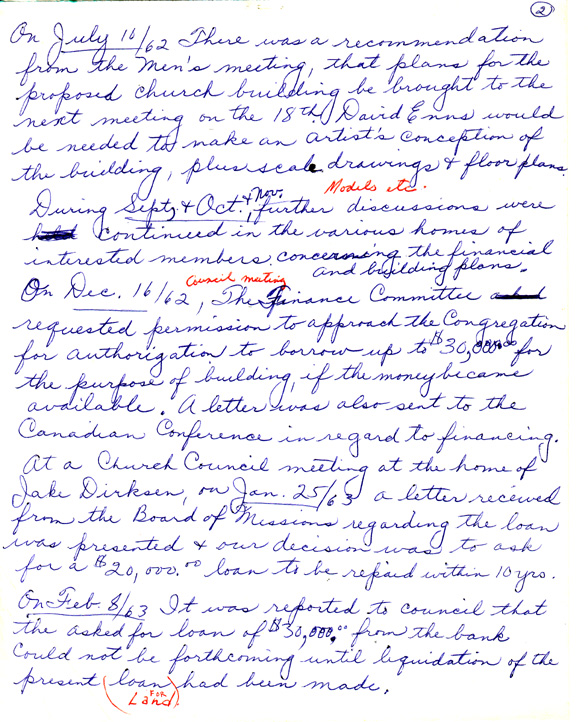 2
On July 16/62 There was a recommendation
from the Men's meeting, that plans for the
proposed church building be brought to the
next meeting on the 18th. David Enns would
be needed to make an artist's conception of
the building, plus scale drawings & floor plans.
Models etc.
During Sept, & Oct., & Nov. further discussions were
continued in the various homes of
interested members concerning the financial
and building plans.
council meeting
On Dec. 16/62, The Finance Committee
requested permission to approach the Congregation
for authorization to borrow up to $30,000.00 for
the purpose of building, if the money became
available. A letter was also sent to the
Canadian Conference in regard to financing.
At a Church Council meeting at the home of
Jake Dirksen, on Jan. 25/63 a letter received
from the Board of Missions regarding the loan
was presented & our decision was to ask
for a $20,000.00 loan to be repaid within 10 yrs.
On Feb. 8/63 It was reported to council that
the asked for loan of $30,000.00 from the bank
could not be forthcoming until liquidation of the
present (loan) had been made.
FOR
Land